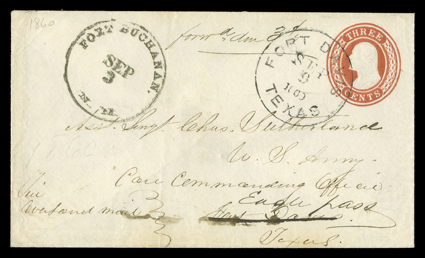 1860
FORT BUCHANAN.
SEP
3
N. M.
forwd
FORT D
9
1860
TEXAS
THREE
CENTS
Asst. Surgn. Chas. Sutherland
U. S. Army.
Care Commanding Officer
Via
Overland mail
Eagle Pass
Fort Davis.
Texas.